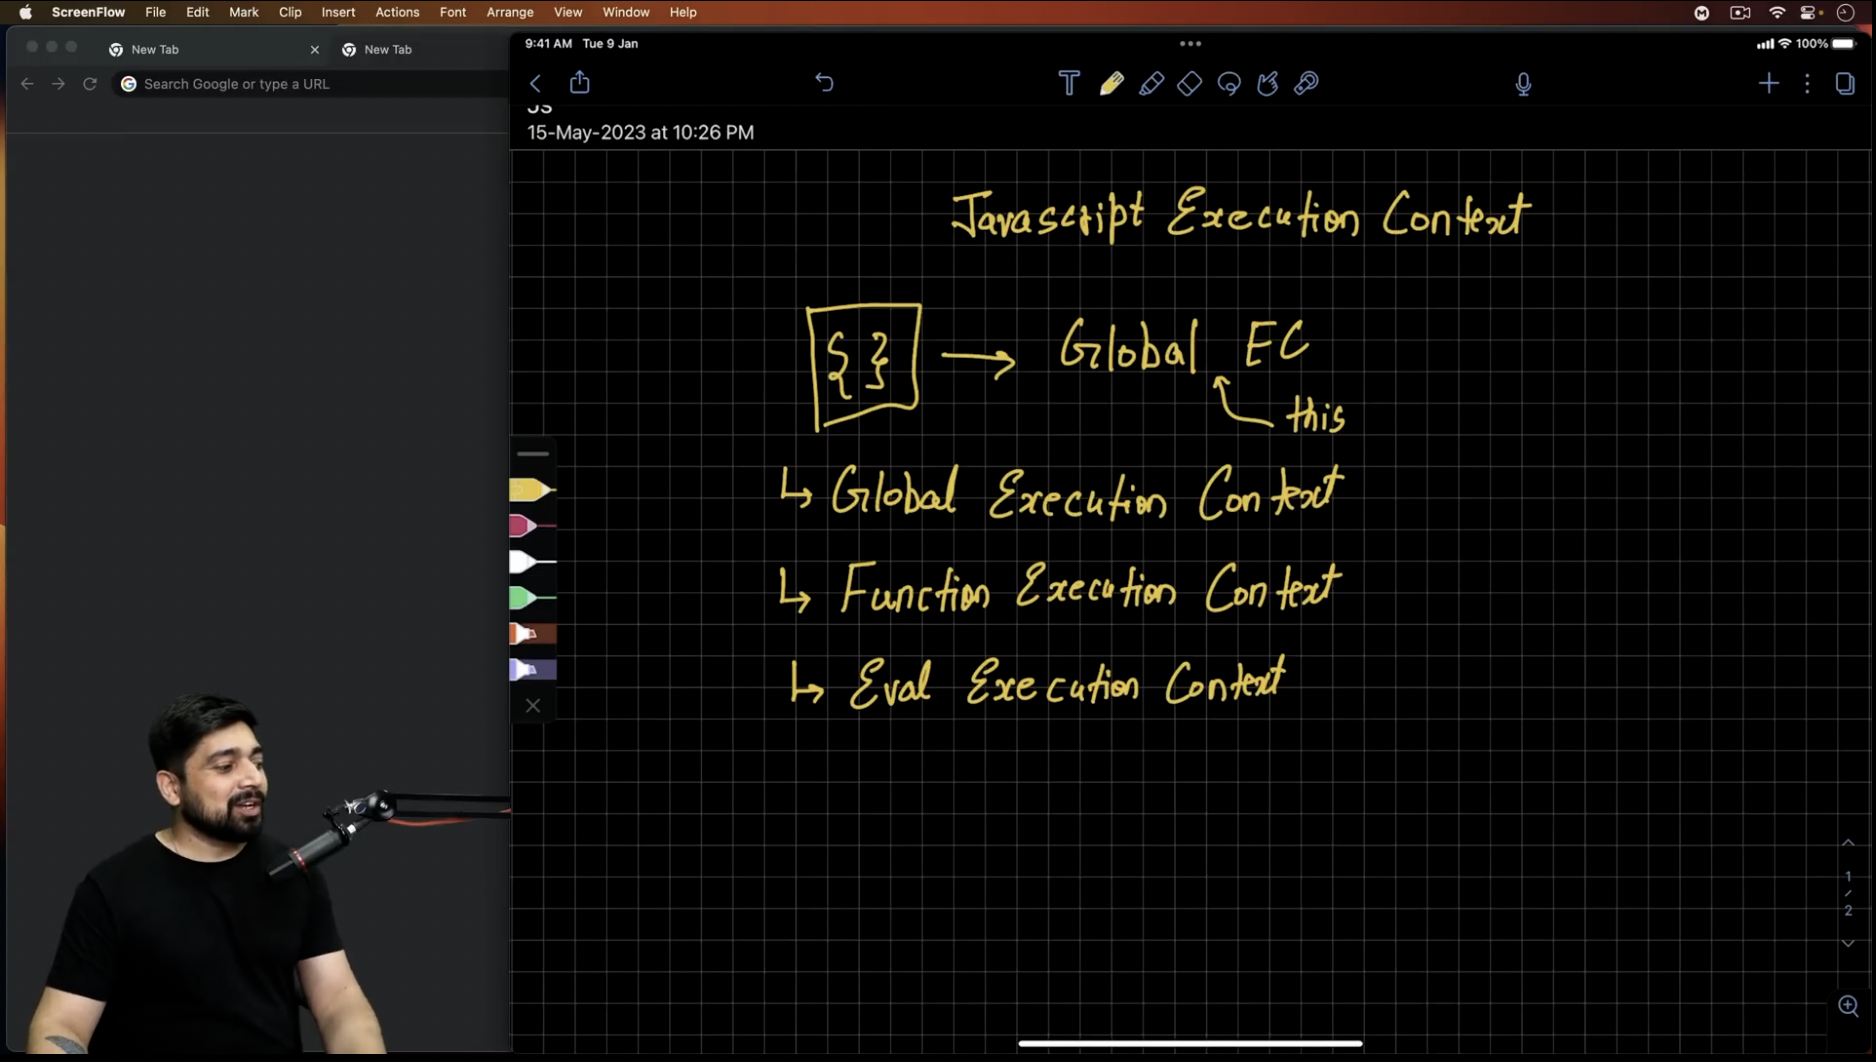 ScreenFlow File Edit Mark Clip Insert Actions Font Arrange View Window Help
New Tab
New Tab
Search Google or type a URL
9:41 AM Tue 9 Jan
100%
JS
15-May-2023 at 10:26 PM
Javascript Execution Context
{ } → Global EC
this
↳ Global Execution Context
↳ Function Execution Context
↳ Eval Execution Context
1
/
2